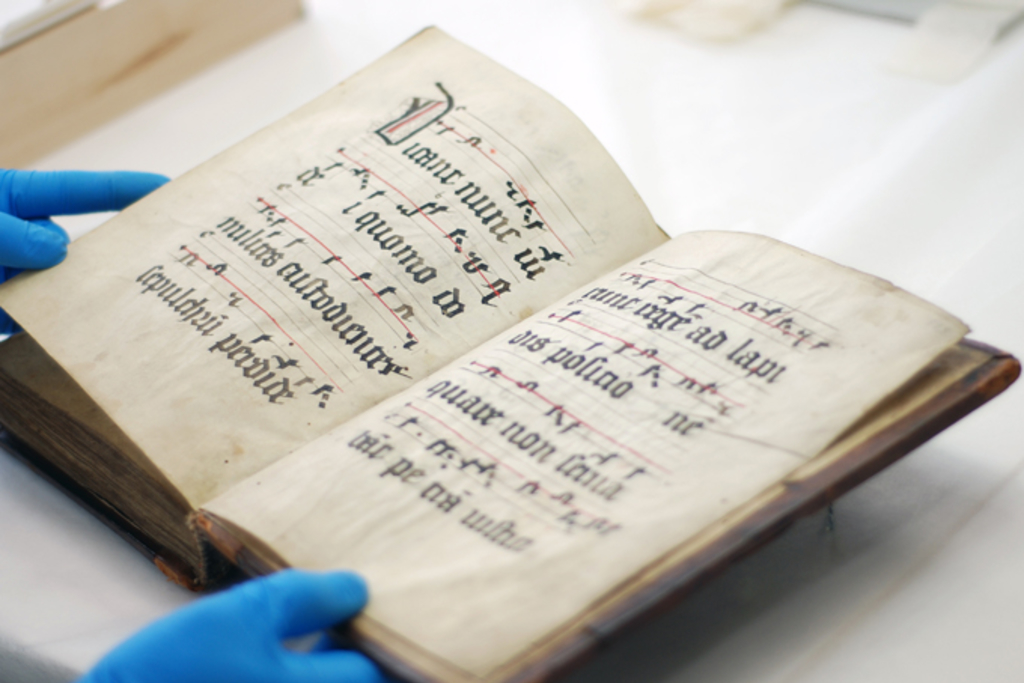 Dicant nunc iu
dei quomo do
milites custodientes
sepulchrū perdide
runt rege ad lapi
dis positio nē
quare non serua
bāt pe trā iustici